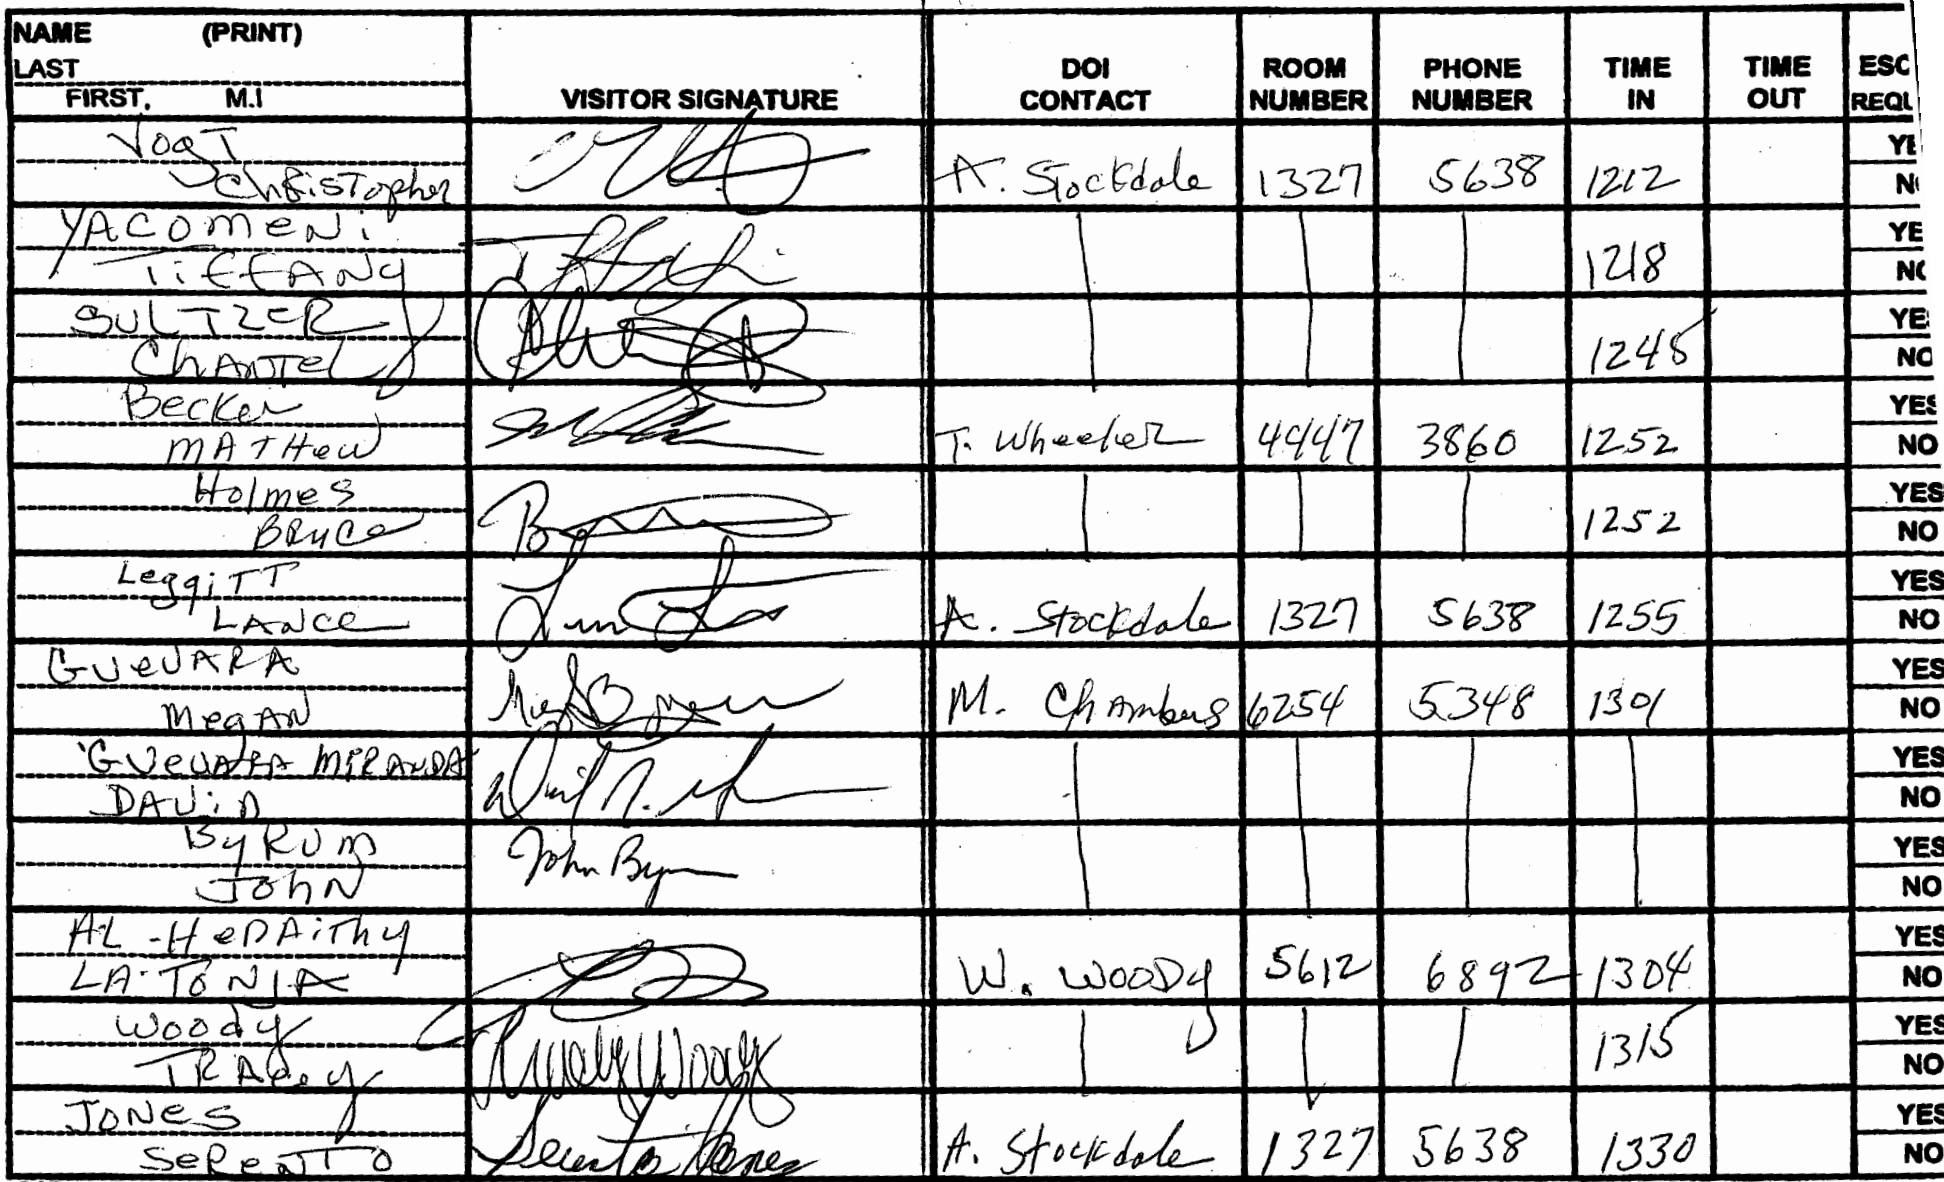 NAME (PRINT)
LAST
FIRST, M.I
VISITOR SIGNATURE
DOI CONTACT
ROOM NUMBER
PHONE NUMBER
TIME IN
TIME OUT
ESC
REQU
Vogt
Christopher
A. Stockdale 1327 5638 1212
YE
N
YACOMENi
TiFFANy
1218
YE
NO
SULTZER
CHANTel
1245
YES
NO
Becker
MATHew
T. Wheeler 4447 3860 1252
YES
NO
Holmes
BRyCe
1252
YES
NO
LeggiTT
LANCe
A. Stockdale 1327 5638 1255
YES
NO
GueVARA
MegAN
M. Chambers 6254 5348 1301
YES
NO
GueVARA MIRANDA
DAViD
YES
NO
ByRUm
JOhN
John Byrum
YES
NO
AL-HeDAiThy
LA-TONJA
W. WOODy 5612 6892 1304
YES
NO
Woody
TRAcey
Woody
1315
YES
NO
JONes
SeReNTO
Jones
A. Stockdale 1327 5638 1330
YES
NO